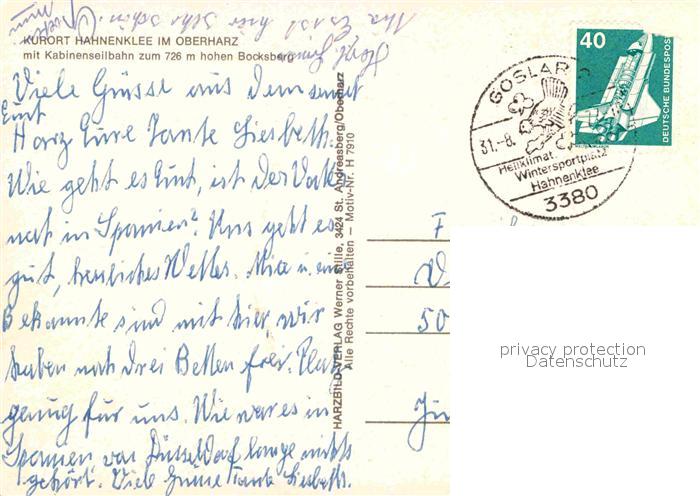 KURORT HAHNENKLEE IM OBERHARZ
mit Kabinenseilbahn zum 726 m hohen Bocksberg
Viele Grüsse aus dem
Harz Eure Tante Liesbeth.
Wie geht es Euch, ist der Vater
noch in Spanien? Uns geht es
gut, herrliches Wetter. Mia u. eine
Bekannte sind mit hier, wir
haben noch drei Betten frei. Platz
genug für uns. Wie war es in
Spanien, von Düsseldorf lange nichts
gehört. Viele Grüsse Tante Liesbeth.
Es ist hier sehr schön.
HARZBILD-VERLAG Werner Stille, 3424 St. Andreasberg/Oberharz
Alle Rechte vorbehalten — Motiv-Nr. H 7910
GOSLAR
31.-8.
Heilklimat.
Wintersportplatz
Hahnenklee
3380
40
DEUTSCHE BUNDESPOST
F
50
privacy protection
Datenschutz